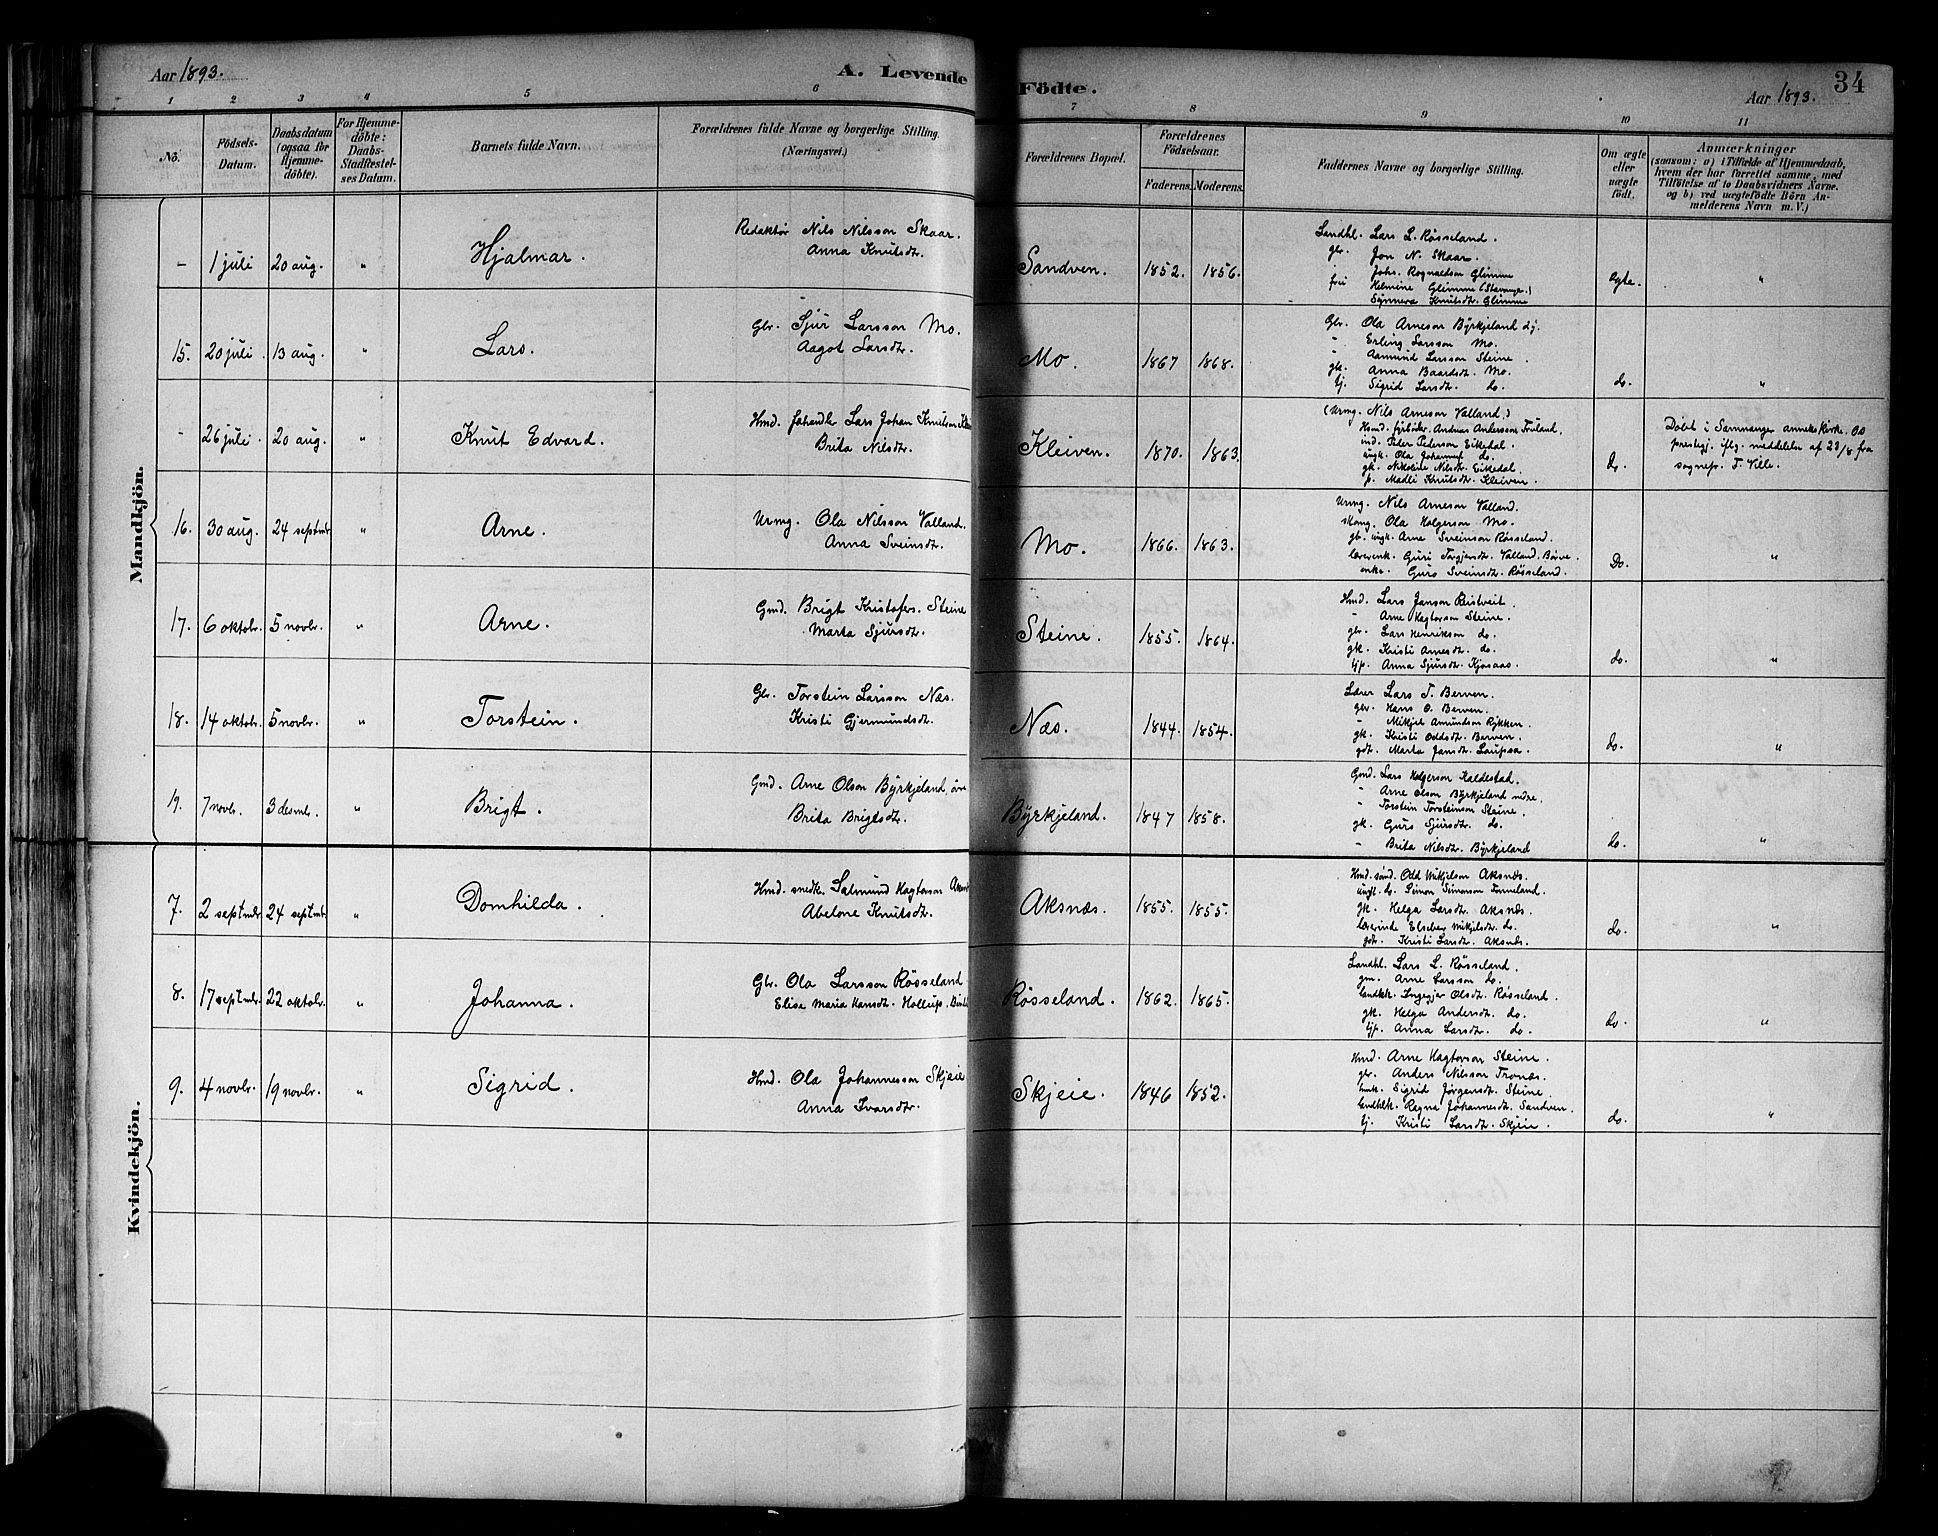 Aar 1893.
A. Levende Födte.
Aar 1893.
34
1 2 3 4 5 6 7 8 9 10 11
No.
Födsels-
Datum.
Daabsdatum
(ogsaa for
Hjemme-
döbte).
For Hjemme-
döbte:
Daabs-
Stadfæstel-
ses Datum.
Barnets fulde Navn.
Forældrenes fulde Navne og borgerlige Stilling.
(Næringsvei.)
Forældrenes Bopæl.
Forældrenes
Födselsaar.
Faderens. Moderens.
Faddernes Navne og borgerlige Stilling.
Om ægte
eller
uægte
födt.
Anmærkninger
(saasom: a) i Tilfælde af Hjemmedaab,
hvem der har forrettet samme, med
Tilföielse af to Daabsvidners Navne,
og b) ved uægtefödte Börn An-
melderens Navn m. V.)
Mandkjön.
- 1 juli 20 aug. " Hjalmar.
Redaktør Nils Nilsson Skaar.
Anna Knutsdtr.
Sandven. 1852. 1856.
Landhl. Lars L. Røsseland.
gbr. Jon N. Skaar.
Johs. Rognaldson Glimme
frøi Helmine Glimme (Stavanger)
Synneva Knutsdtr. Glimme
ægte. "
15. 20 juli. 13 aug. " Lars.
Gbr. Sjur Larsson Mo.
Aagot Larsdtr.
Mo. 1867 1868.
Gbr. Ola Arneson Byrkjeland dy.
- Erling Larsson Mo.
- Aamund Larsson Steine.
gk. Anna Baardsdt. Mo.
tj. Sigrid Larsdtr. do.
do. "
- 26 juli. 20 aug. " Knut Edvard.
Hmd. Lars Johan Knutson
Brita Nilsdtr.
Kleiven. 1870. 1863.
(Urmg. Nils Arneson Valland.)
Hmd. Andreas Andersson
ind. Peder Pederson Eikedal.
ungk. Ola Johannes do.
gk. Nikoline Nilsdtr. Eikedal.
p. Madli Knutsdtr. Kleiven.
Do. Døbt i Samnanger annekskirke. Os
prestegj. iflg. meddelelse af 23/8 fra
sognepr. F. Ville.
16. 30 aug. 24 septmbr. " Arne.
Urmg. Ola Nilsson Valland.
Anna Sveinsdtr.
Mo. 1866. 1863.
Urmg. Nils Arneson Valland.
skomg. Ola Holgerson Mo.
gb. ungk. Arne Sveinson Røsseland.
lærerenk. Guri Torgjersdtr. Valland. Børve.
enke. Guro Sveinsdtr. Røsseland.
Do. "
17. 6 oktobr. 5 novbr. " Arne.
Gmd. Brigt Kristofers. Steine
Marta Sjursdtr.
Steine. 1855. 1864.
Hmd. Lars Janson Reistveit.
- Arne Hagtorson Steine.
gbr. Lars Henrikson do.
gk. Kristi Arnesdtr. do.
tjp. Anna Sjursdtr. Kjosaas.
do. "
18. 14 oktobr. 5 novbr. " Torstein.
Gbr. Torstein Larsson Næs.
Kristi Gjermundsdtr.
Næs. 1844. 1854.
Lærer Lars T. Berven.
gbr. Hans O. Berven.
- Mikjel Amundson Rykken.
gk. Kristi Oddsdtr. Berven.
gdt. Marta Jansdtr. Laupsa.
do. "
19. 7 novbr. 3 desmb. " Brigt.
Gmd. Arne Olson Byrkjeland, øvre
Brita Brigtsdtr.
Byrkjeland. 1847 1858.
Gmd. Lars Holgerson Kaldestad.
- Arne Olson Byrkjeland nedre.
- Torstein Torsteinson Steine.
gk. Guro Sjursdtr. do.
- Brita Nilsdtr. Byrkjeland
do. "
Kvindekjön.
7. 2 septmbr. 24 septmbr. " Domhilda.
Hmd. snedk. Salmund Hagtorson
Abelone Knutsdtr.
Aksnæs. 1855. 1855.
Hmd. Odd Mikjelson Aksnæs.
ungk. do. Simon Simonson Tinneland.
gk. Helga Larsdtr. Aksnæs.
lærerinde Elseber Mikjelsdtr. do.
gdt. Kristi Larsdtr. Aksnæs.
do. "
8. 17 septmbr. 22 oktobr. " Johanna.
Gbr. Ola Larsson Røsseland
Elisa Maria Hansdt. Hollrup.
Røsseland. 1862. 1865.
Landhl. Lars L. Røsseland.
gm. Arne Larsson do.
landhk. Ingegjer Olsdt. Røsseland.
gk. Helga Andersdtr. do.
tjp. Anna Larsdtr. do.
do. "
9. 4 novbr. 19 novbr. " Sigrid.
Hmd. Ola Johannesson Skjeie
Anna Ivarsdtr.
Skjeie. 1846 1852.
Hmd. Arne Hagtorson Steine.
gbr. Anders Nilsson Tronæs.
hmk. Sigrid Jørgensdtr. Steine.
landhlk. Ragna Johannesdtr. Sandven.
tj. Kristi Larsdtr. Skjeie.
do. "